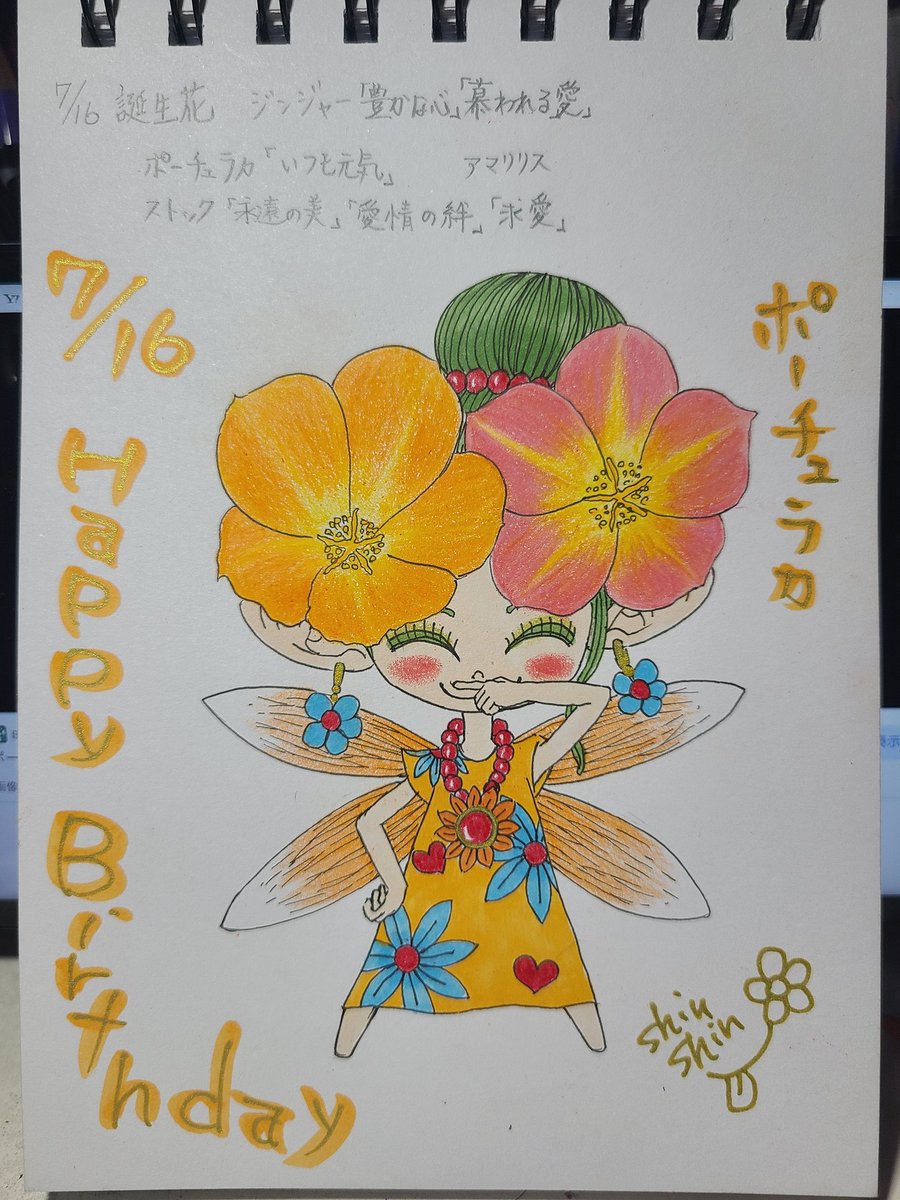 7/16 誕生花 ジンジャー「豊かな心」「慕われる愛」
ポーチュラカ「いつも元気」 アマリリス
ストック「永遠の美」「愛情の絆」「求愛」
7/16
Happy
Birthday
ポーチュラカ
shin
shin
Y!
表示